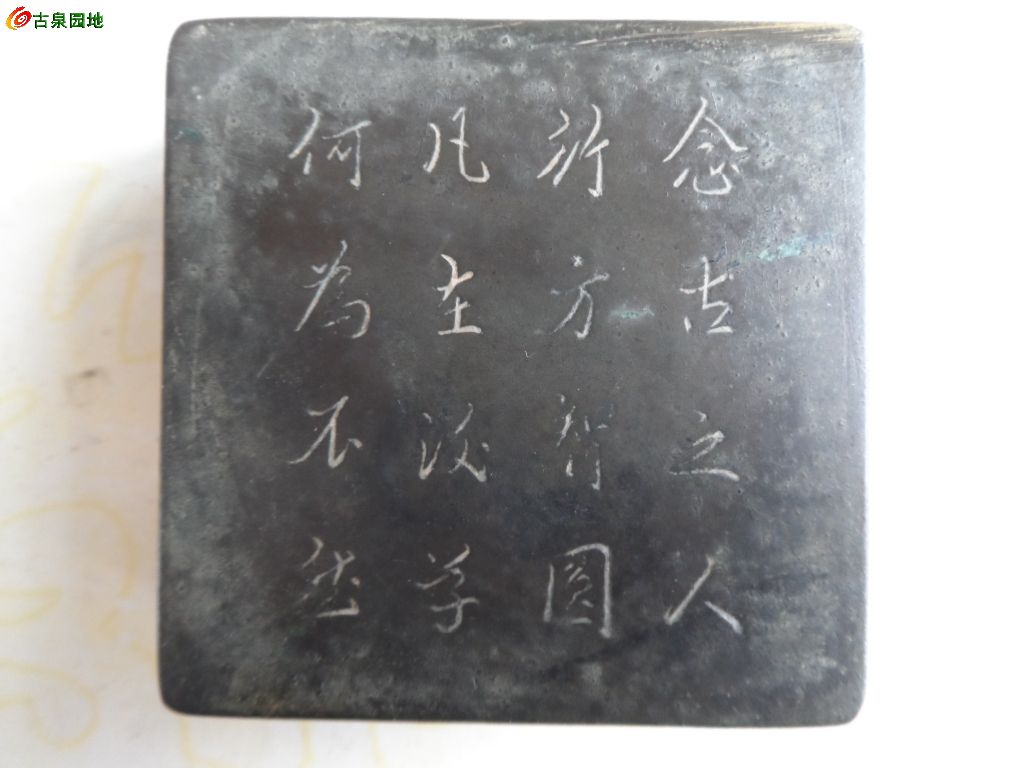 古泉园地
念古之人
行方智圓
凡在後学
何為不然